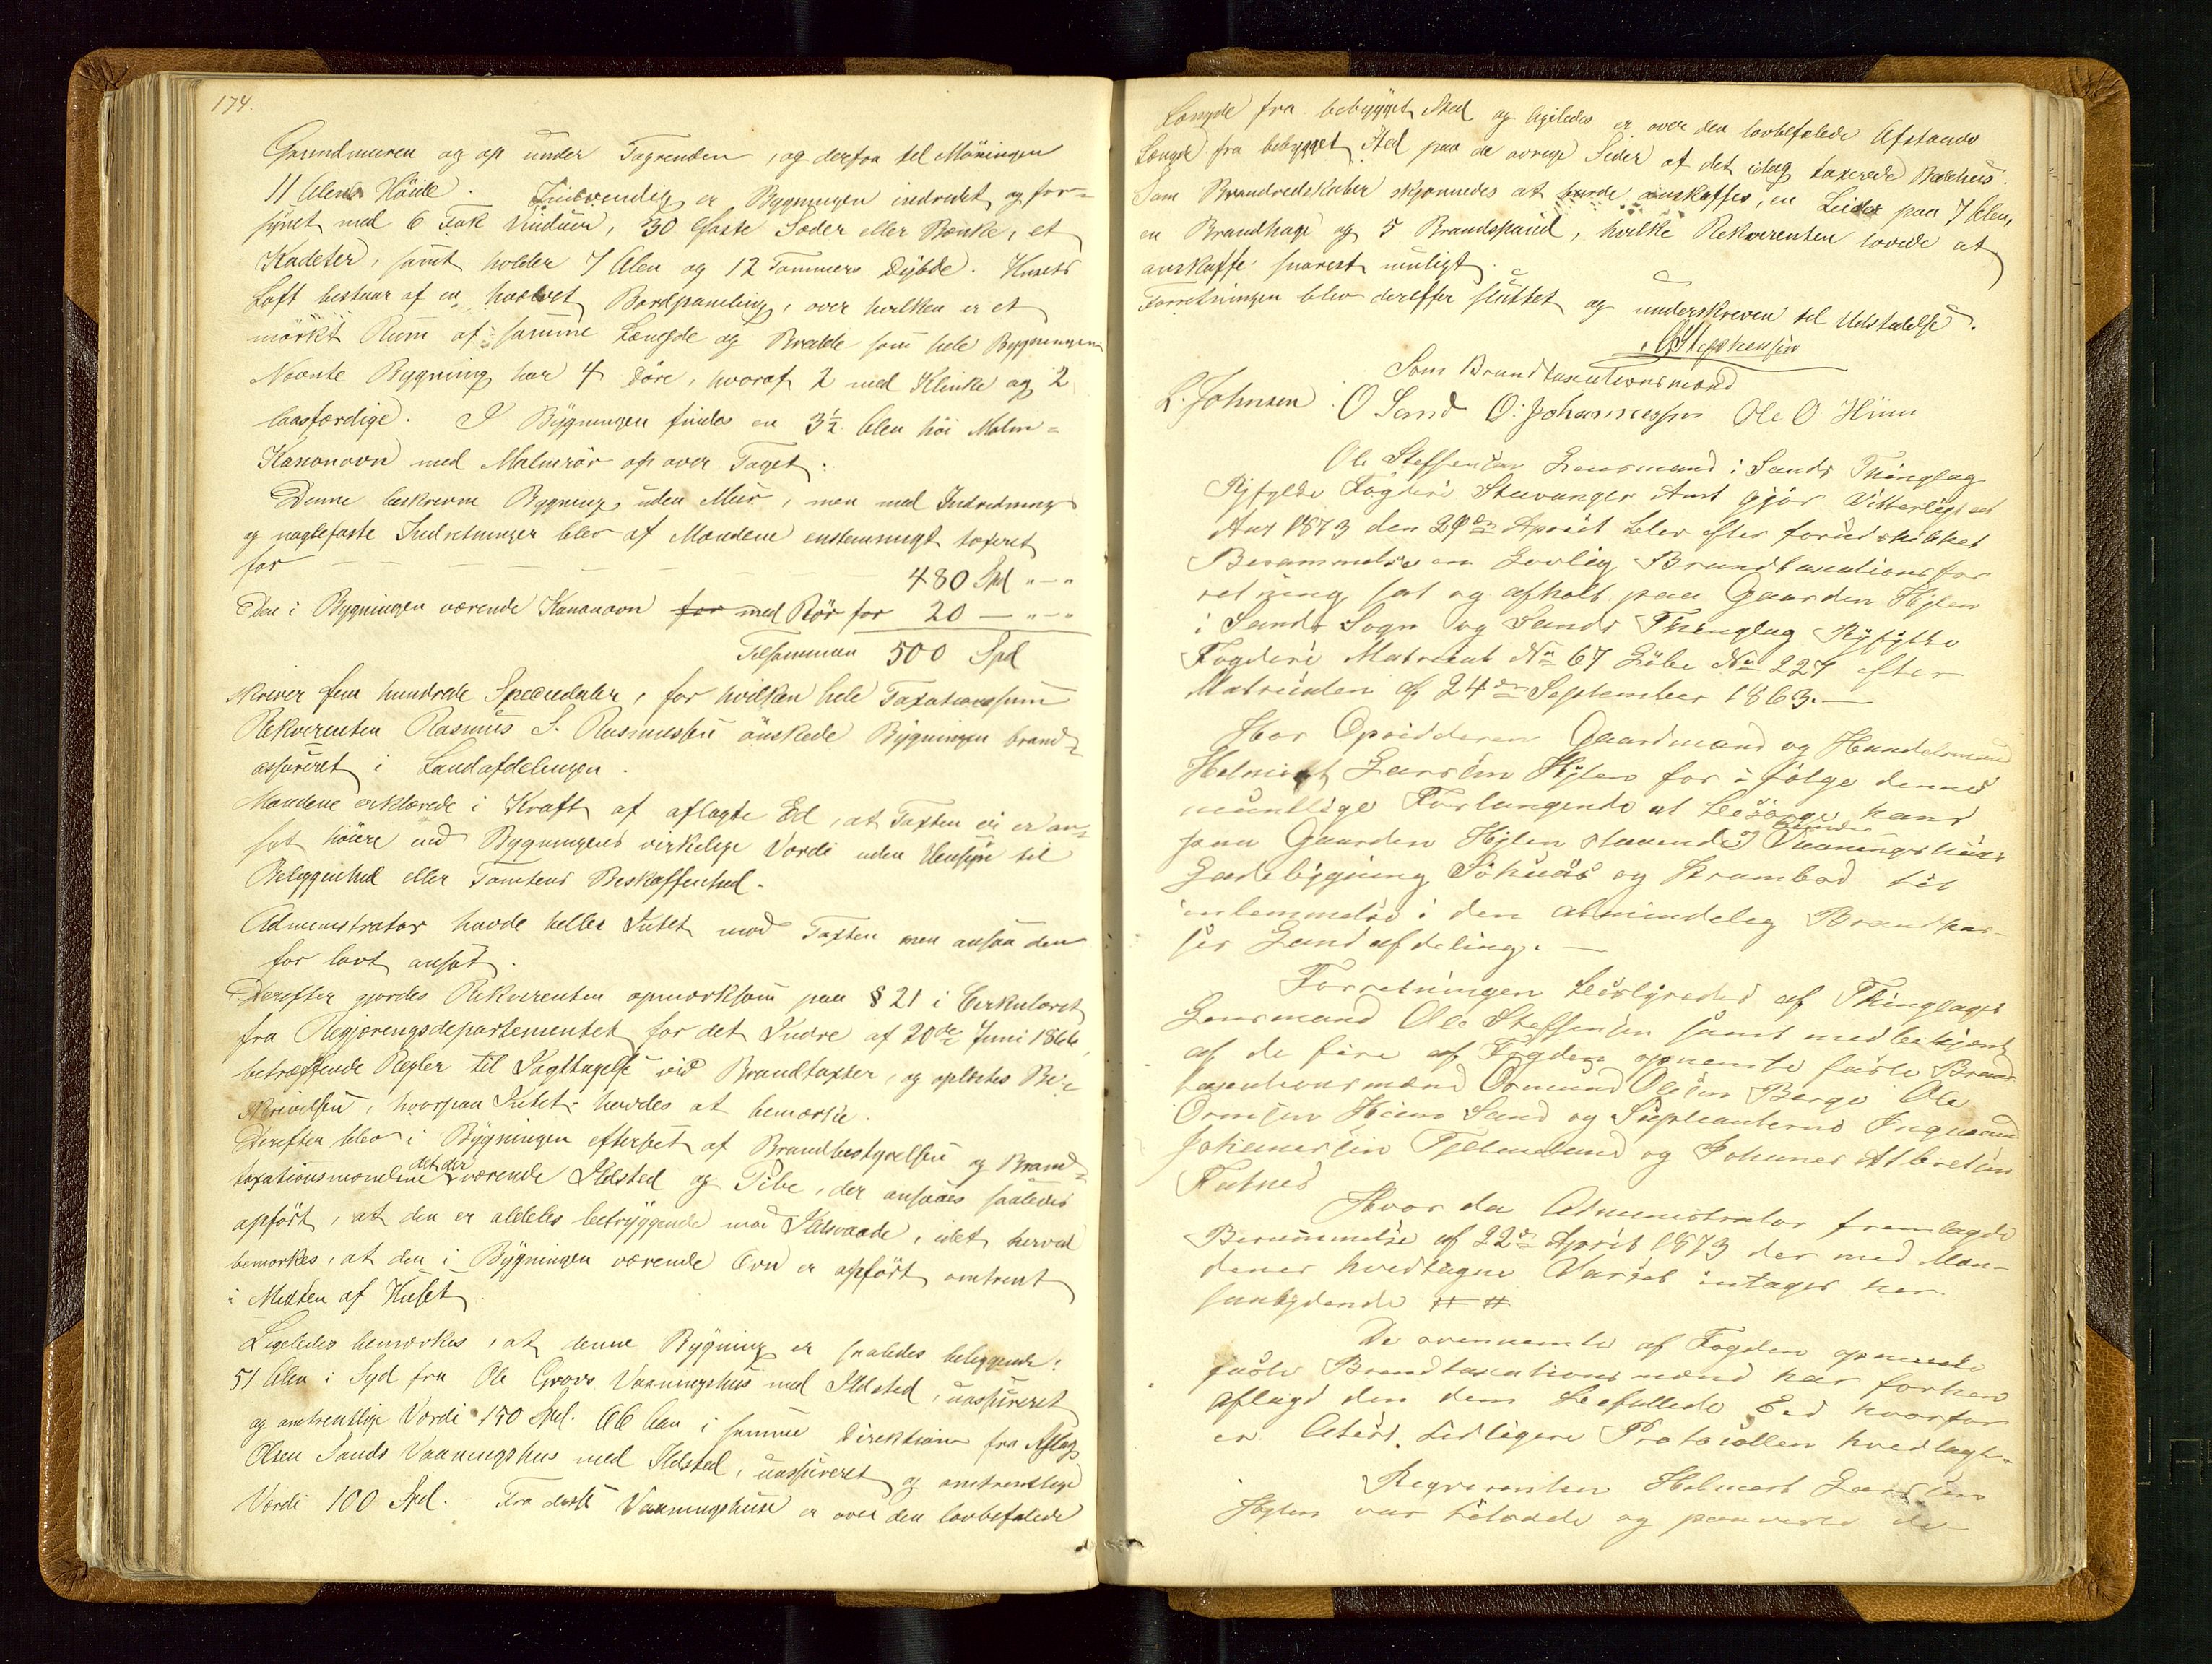 174.
Grundmuren og op under Tagrenden, og derfra til Möningen
11 Alens Höide. Indvendig er Bygningen indredet og for-
synet med 6 Fak Vinduer, 30 faste Sæder eller Bænke, et
Katheter, samt holder 7 Alen og 12 Tommers Dybde. Husets
Loft bestaar af en hvælvet Bordpaneling, over hvilken er et
mörkt Rum af samme Længde og Bredde som hele Bygningen
Nævnte Bygning har 4 Döre, hvoraf 2 med Klinke og 2
laasfærdige. I Bygningen findes en 3½ Alen höi Malm-
Kanonovn med Malmrör op over Taget.
Denne beskrevne Bygning uden Mur, men med Indredning
og naglefaste Indretninger blev af Mændene enstemmigt taxeret
for — — — 480 Spd "-"
Den i Bygningen værende Kanonovn for med Rör for 20 — "-"
Tilsammen 500 Spd
skriver fem hundrede Speciedaler, for hvilken hele Taxationssum
Rekverenten Rasmus S. Rasmussen önskede Bygningen brand-
assureret i Landafdelingen.
Mændene erklærede i Kraft af aflagte Ed, at Taxten ei er an-
sat höiere end Bygningens virkelige Værdi uden Hensyn til
Beliggenhed eller Tomtens Beskaffenhed.
Administrator havde heller Intet mod Taxten men ansaa den
for lavt ansat.
Derefter gjordes Rekverenten opmærksom paa § 21 i Cirkulæret
fra Regjeringsdepartementet for det Indre af 20de Juni 1866,
betræffende Regler til Iagttagelse ved Brandtaxter, og oplæstes Be-
skrivelsen, hvorpaa Intet havdes at bemærke.
Derefter blev i Bygningen efterseet af Brandbestyrelsen og Brand-
taxationsmændene det der værende Ildsted og Pibe, der ansaaes saaledes
opfört, at den er aldeles betryggende mod Ildsvaade, idet herved
bemærkes, at den i Bygningen værende Ovn er opfört omtrent
i Midten af Huset
Ligeledes bemærkes, at denne Bygning er saaledes beliggende:
51 Alen i Syd fra Ole Groves Vaaningshus med Ildsted, uassureret
og omtrentlige Værdi 150 Spd. 66 Alen i samme Direktion fra Aslag
Olsen Sands Vaaningshus med Ildsted, uassureret og omtrentlige
Værdi 100 Spd. Fra disse Vaaningshuse er over den lovbefalede
Længde fra bebygget Sted og ligeledes er over den lovbefalede Afstands
Længde fra bebygget Sted paa de övrige Sider af det idag taxerede Bedehus.
Som Brandredskaber skjönnedes at burde anskaffes, en Leider paa 7 Alen,
en Brandhage og 5 Brandspand, hvilke Rekverenten lovede at
anskaffe snarest muligt.
Forretningen blev derefter sluttet og underskreven til Udstedelse.
O Stephensen
Som Brandtaxationsmænd
L. Johnsen O Sand O. Johannessen Ole O Hiim
Ole Steffensen Lensmand i Sands Thinglag
Ryfylke Fogderi Stavanger Amt gjör Vitterligt at
Aar 1873 den 29de April blev efter forudskikket
Berammelse en Lovlig Brandtaxationsfor
retning sat og afholt paa Gaarden Hylen
i Sands Sogn og Sands Thinglag Ryfylke
Fogderi Matrikul No 67 Löbe No 227 efter
Matriculen af 24de September 1863.—
Hos Opsidderen Gaardmand og Handelsmand
Helmich Larsen Hylen for i fölge dennes
mundtlige Forlangende at besörge hans
paa Gaarden Hylen staaende Vaaningshuus
Ladebygning Söhuus og Krambod til
inlemmelse i den almindelig Brandkas-
ses Landafdeling.—
Forretningen bestyredes af Thinglagets
Lensmand Ole Steffensen samt medbetjent
af de fire af Fogden opnemte faste Brand
taxationsmænd Ormund Olesen Berge Ole
Ormsen Hiim Sand og Supleanterne Ingmund
Johannessen Fjelmeland og Johannes Albretsen
Hvor da Administrator fremlagde
Berammelse af 22de April 1873 der med Mæn-
denes hvedtagne Varsel intages her
saalydende # #
De ovennemte af Fogden opnemte
faste Brandtaxationsmænd har forhen
aflagd den dem befallede Ed hvorfor
er Atest tidligere Protocollen hvedlagt.
Reqvirenten Helmich Larsen
Hylen var tilstæde og paaviste de